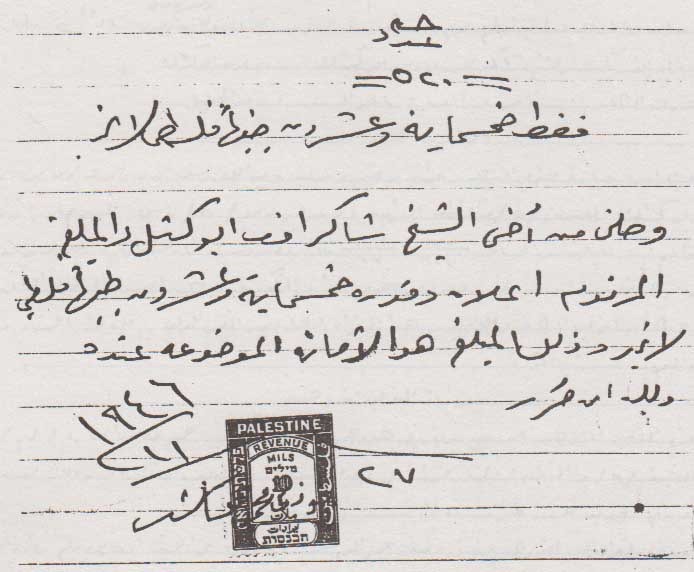 عدد
=٥٢٠=
فقط خمسماية وعشرون جنيهاً فلسطينياً لا غير
وصلني من أخي الشيخ شاكر ابو كشك المبلغ
المرقوم اعلاه وقدره خمسماية وعشرون جنيهاً فلسطيني
لا غير وذلك المبلغ هو الأمانة الموضوعه عنده
وللبيان حرر
٢٧
١١
١٩٤٦
PALESTINE
REVENUE
MILS
מילים
10
ملات
محمد
ايرادات
הכנסות